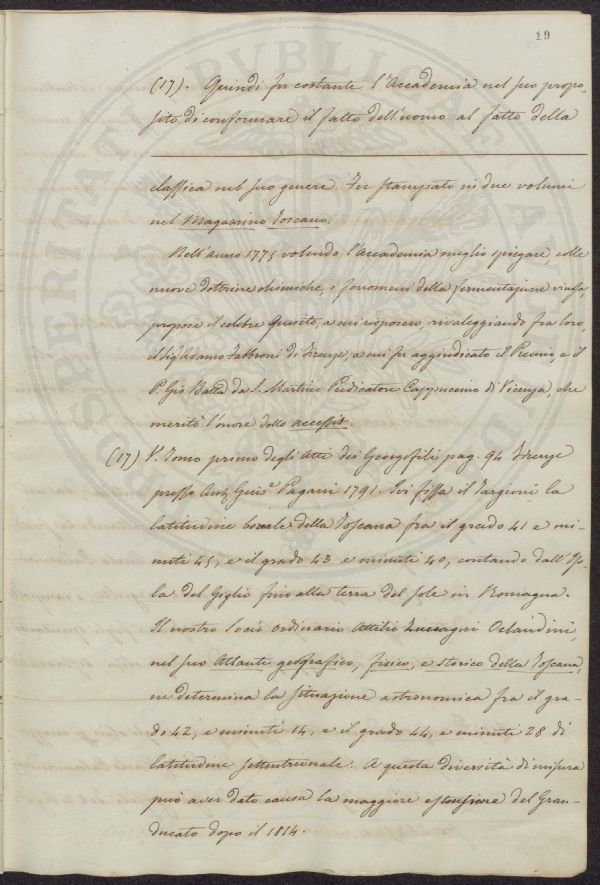 19
(17). Quindi fu costante l'Accademia nel suo propo-
sito di conformare il fatto dell'uomo al fatto della
classica nel suo genere. Fu stampato in due volumi
nel Magazzino Toscano.
Nell'anno 1775 volendo l'Accademia meglio spiegare, colle
nuove dottrine chimiche, i fenomeni della fermentazione vinosa,
propose il celebre Quesito, a cui risposero, rivaleggiando fra loro,
il Sig. Adamo Fabbroni di Firenze, a cui fu aggiudicato il Premio, e il
P. Gio Batta da S. Martino Predicatore Cappuccino di Vicenza, che
meritò l'onore dello accessit.
(17) V. Tomo primo degli Atti dei Georgofili pag. 94. Firenze
presso Gius.e Pagani 1791. Ivi fissa il Targioni la
latitudine boreale della Toscana fra il grado 41 e mi-
nuti 45, e il grado 43 e minuti 40, contando dall'Iso-
la del Giglio fino alla terra del Sole in Romagna.
Il nostro Socio ordinario Attilio Zuccagni Orlandini,
nel suo Atlante geografico, fisico, e storico della Toscana,
ne determina la situazione astronomica fra il gra-
do 42, e minuti 14, e il grado 44, e minuti 28 di
latitudine settentrionale. A questa diversità di misura
può aver dato causa la maggiore estensione del Gran-
ducato dopo il 1814.
PUBLICAE
PROSPERITATI